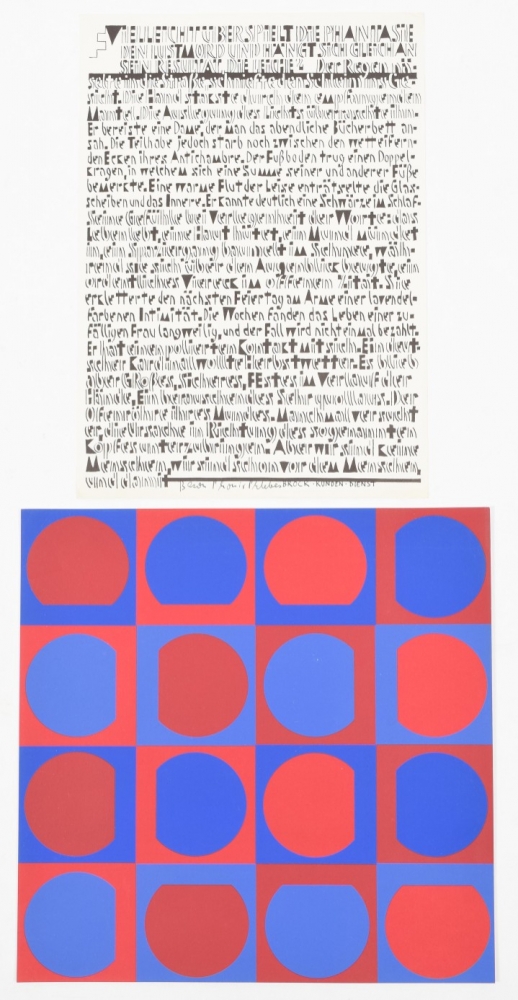 VIELLEICHT ÜBERSPIELT DIE PHANTASIE
DEN LUSTMORD UND HÄNGT SICH GLEICH AN
SEIN RESULTAT, DIE LEICHE. Der Regen näs-
Gesicht. Die Hand
Mantel. Die
Er bereiste eine Dame, der man das abendliche Bücherbett an-
sah. Die Teilhabe jedoch starb noch zwischen den wetteifern-
den Ecken ihres Antichambre. Der Fußboden trug einen Doppel-
kragen, in welchem sich eine Summe seiner und anderer Füße
bemerkte. Eine warme Flut der Leise enträtselte die Glas-
scheiben und das Innere. Er kannte deutlich eine Schwärze im Schlaf.
Seine Gefühle bei Verlegenheit der Worte: das
Leben lebt, eine Haut hütet, ein Mund mündet
im Schuhe, wäh-
rend sie sich über den Augenblick beugte, ein
ordentliches Viereck im offenen Zitat. Sie
erkletterte den nächsten Feiertag am Arme einer lavendel-
farbenen Intimität. Die Wochen fanden das Leben einer zu-
fälligen Frau langweilig, und der Fall wird nicht einmal bezahlt.
Er hat einen polierten Kontakt mit sich. Ein deut-
scher Kardinal wollte Herbstwetter. Es blieb
aber Großes, sicheres, FEstes im Verlauf der
Hände, Ein berauschendes
Offenröhre ihres Mundes. Manchmal versucht
er, die Ursache in Richtung des sogenannten
Kopfes unterzubringen. Aber wir sind keine
Menschen, wir sind schon vor dem Menschen,
und damit,
BROCK-KUNDEN-DIENST